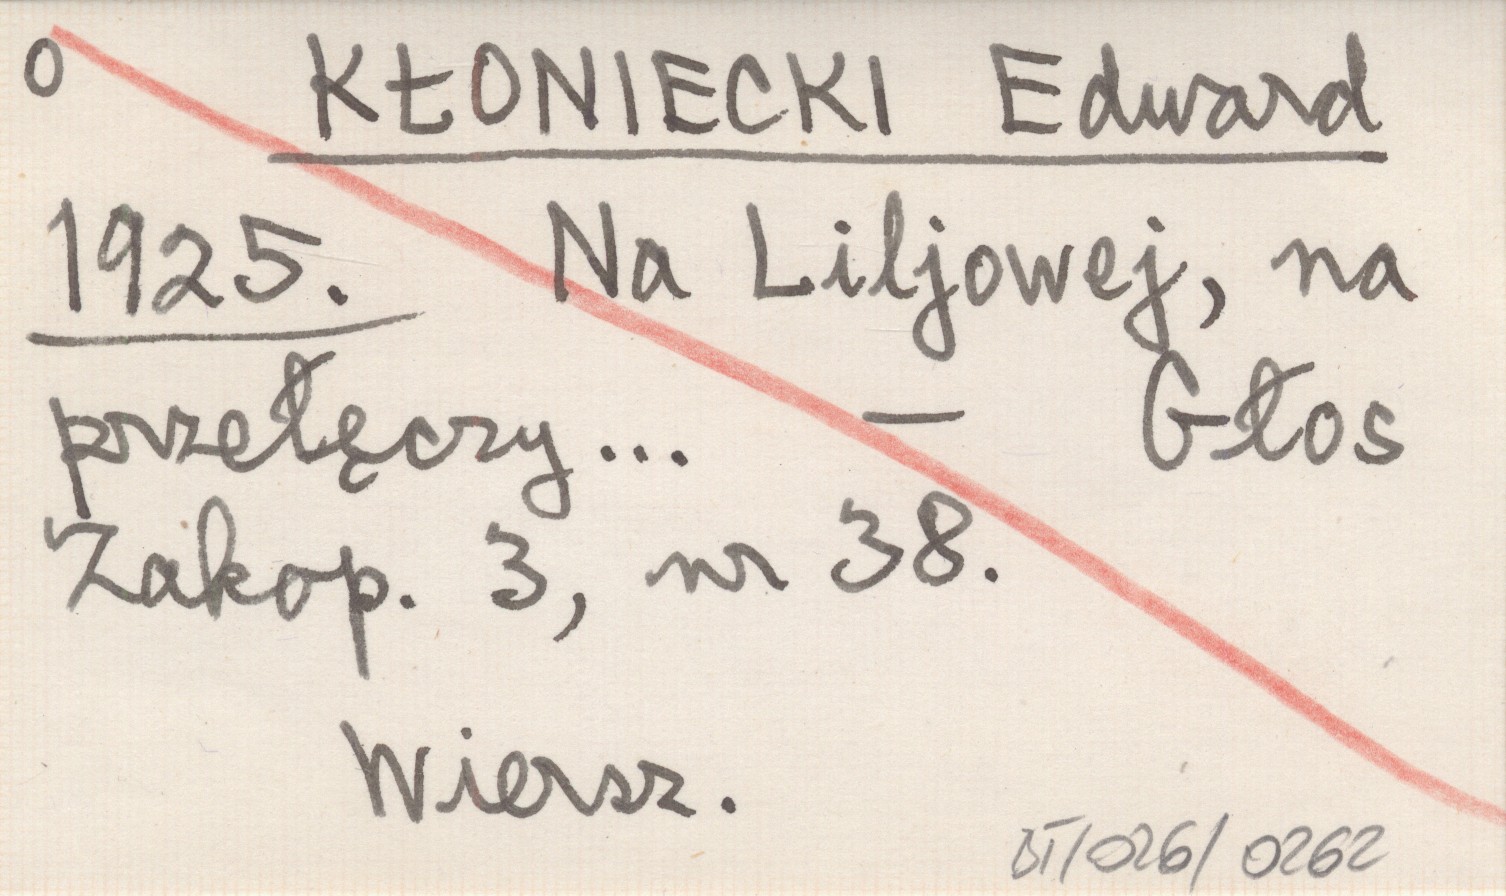 0 KŁONIECKI Edward
1925. Na Liljowej, na
przełęczy... — Głos
Zakop. 3, nr 38.
Wiersz.
BT/026/0262